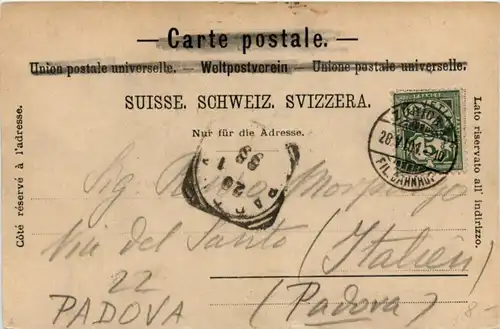 — Carte postale. —
Union postale universelle. — Weltpostverein — Unione postale universale.
SUISSE. SCHWEIZ. SVIZZERA.
Nur für die Adresse.
Côté réservé à l'adresse.
Lato riservato all' indirizzo.
ZÜRICH
FIL. BAHNHOF
5
Sig Morpurgo
Via del Santo (Italien)
22 (Padova)
PADOVA
8-